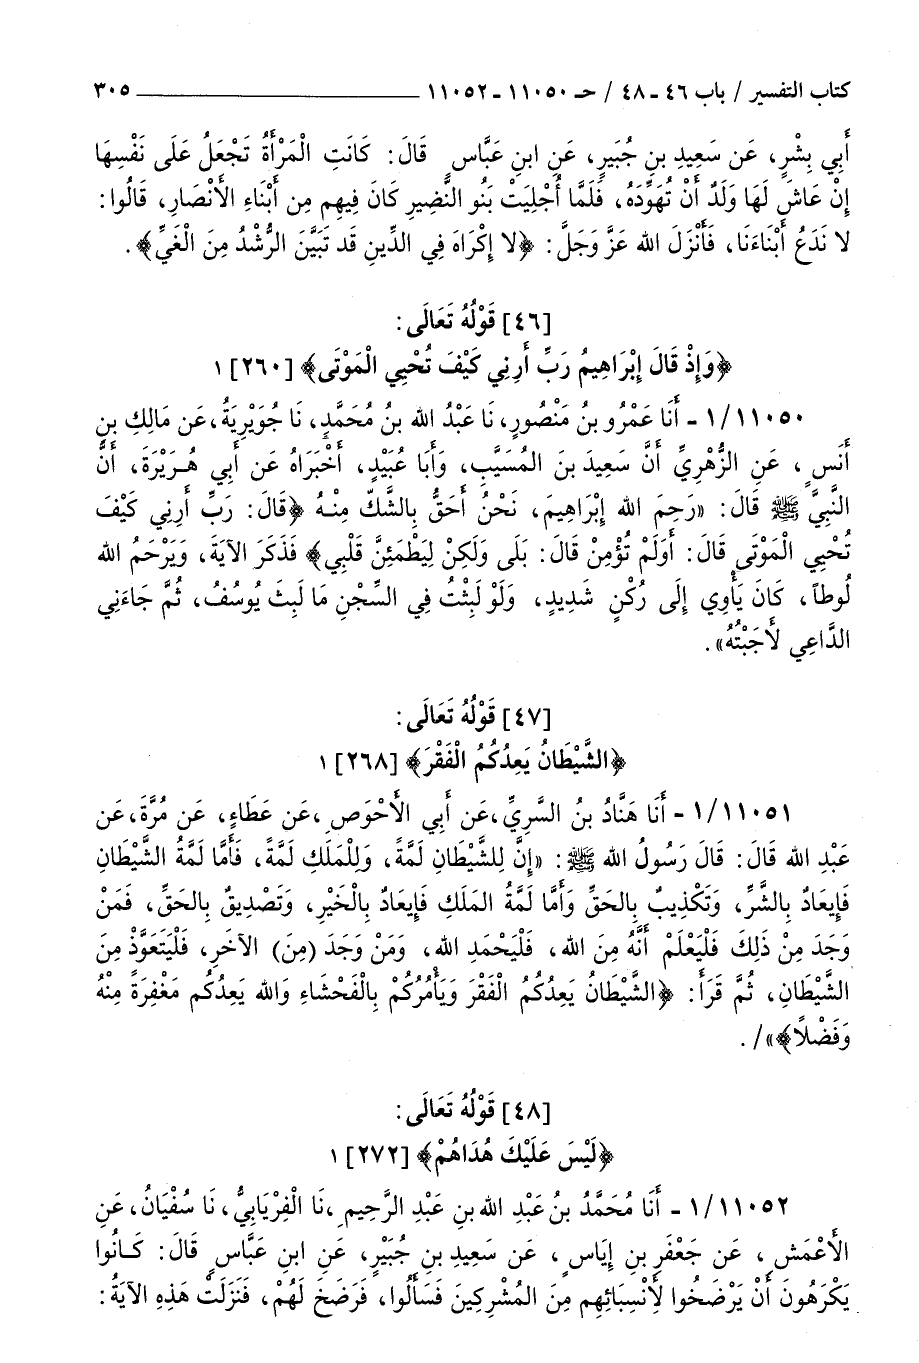 كتاب التفسير / باب ٤٦ ـ ٤٨ / حـ ١١٠٥٠ ـ ١١٠٥٢ ــــــــــــــــــــ ٣٠٥
أَبِي بِشْرٍ، عَن سَعِيدِ بنِ جُبَيرٍ، عَنِ ابنِ عَبَّاسٍ قَالَ: كَانَتِ الْمَرْأَةُ تَجْعَلُ عَلَى نَفْسِهَا
إِنْ عَاشَ لَهَا وَلَدٌ أَنْ تُهَوِّدَهُ، فَلَمَّا أُجْلِيَتْ بَنُو النَّضِيرِ كَانَ فِيهِم مِن أَبْنَاءِ الأَنْصَارِ، قَالُوا:
لا نَدَعُ أَبْنَاءَنَا، فَأَنْزَلَ الله عَزَّ وَجَلَّ: ﴿لا إِكْرَاهَ فِي الدِّينِ قَد تَبَيَّنَ الرُّشْدُ مِنَ الْغَيِّ﴾.
[٤٦] قَوْلُهُ تَعَالَى:
﴿وَإِذْ قَالَ إِبْرَاهِيمُ رَبِّ أَرِنِي كَيْفَ تُحْيِي الْمَوْتَى﴾ [٢٦٠] ١
١/١١٠٥٠ ـ أَنَا عَمْرُو بنُ مَنْصُورٍ، نَا عَبْدُ الله بنُ مُحَمَّدٍ، نَا جُوَيْرِيَةُ، عَن مَالِكِ بنِ
أَنَسٍ، عَنِ الزُّهْرِيِّ أَنَّ سَعِيدَ بنَ المُسَيَّبِ، وَأَبَا عُبَيْدٍ، أَخْبَرَاهُ عَن أَبِي هُـرَيْرَةَ، أَنَّ
النَّبِيَّ ﷺ قَالَ: «رَحِمَ الله إِبْرَاهِيمَ، نَحْنُ أَحَقُّ بِالشَّكِّ مِنْـهُ ﴿قَالَ: رَبِّ أَرِنِي كَيْفَ
تُحْيِي الْمَوْتَى قَالَ: أَوَلَمْ تُؤْمِنْ قَالَ: بَلَى وَلَكِنْ لِيَطْمَئِنَّ قَلْبِي﴾ فَذَكَرَ الآيَةَ، وَيَرْحَمُ الله
لُوطاً، كَانَ يَأْوِي إِلَى رُكْنٍ شَدِيدٍ، وَلَوْ لَبِثْتُ فِي السِّجْنِ مَا لَبِثَ يُوسُفُ، ثُمَّ جَاءَنِي
الدَّاعِي لأَجَبْتُهُ».
[٤٧] قَوْلُهُ تَعَالَى:
﴿الشَّيْطَانُ يَعِدُكُمُ الْفَقْرَ﴾ [٢٦٨] ١
١/١١٠٥١ ـ أَنَا هَنَّادُ بنُ السَّرِيِّ، عَن أَبِي الأَحْوَصِ، عَن عَطَاءٍ، عَن مُرَّةَ، عَن
عَبْدِ الله قَالَ: قَالَ رَسُولُ الله ﷺ: «إِنَّ لِلشَّيْطَانِ لَمَّةً، وَلِلْمَلَكِ لَمَّةً، فَأَمَّا لَمَّةُ الشَّيْطَانِ
فَإِيعَادٌ بِالشَّرِّ، وَتَكْذِيبٌ بِالحَقِّ وَأَمَّا لَمَّةُ المَلَكِ فَإِيعَادٌ بِالْخَيْرِ، وَتَصْدِيقٌ بِالحَقِّ، فَمَنْ
وَجَدَ مِنْ ذَلِكَ فَلْيَعْلَمْ أَنَّهُ مِنَ الله، فَلْيَحْمَدِ الله، وَمَنْ وَجَدَ (مِنَ) الآخَرِ، فَلْيَتَعَوَّذْ مِنَ
الشَّيْطَانِ، ثُمَّ قَرَأَ: ﴿الشَّيْطَانُ يَعِدُكُمُ الْفَقْرَ وَيَأْمُرُكُمْ بِالْفَحْشَاءِ وَالله يَعِدُكُم مَغْفِرَةً مِنْهُ
وَفَضْلاً﴾»/.
[٤٨] قَوْلُهُ تَعَالَى:
﴿لَيْسَ عَلَيْكَ هُدَاهُمْ﴾ [٢٧٢] ١
١/١١٠٥٢ ـ أَنَا مُحَمَّدُ بنُ عَبْدِ الله بنِ عَبْدِ الرَّحِيمِ، نَا الْفِرْيَابِيُّ، نَا سُفْيَانُ، عَنِ
الأَعْمَشِ، عَن جَعْفَرِ بنِ إِيَاسٍ، عَن سَعِيدِ بنِ جُبَيْرٍ، عَنِ ابنِ عَبَّاسٍ قَالَ: كَـانُوا
يَكْرَهُونَ أَنْ يَرْضَخُوا لِأَنْسِبَائِهِم مِنَ المُشْرِكِينَ فَسَأَلُوا، فَرَضَخَ لَهُمْ، فَنَزَلَتْ هَذِهِ الآيَةُ: